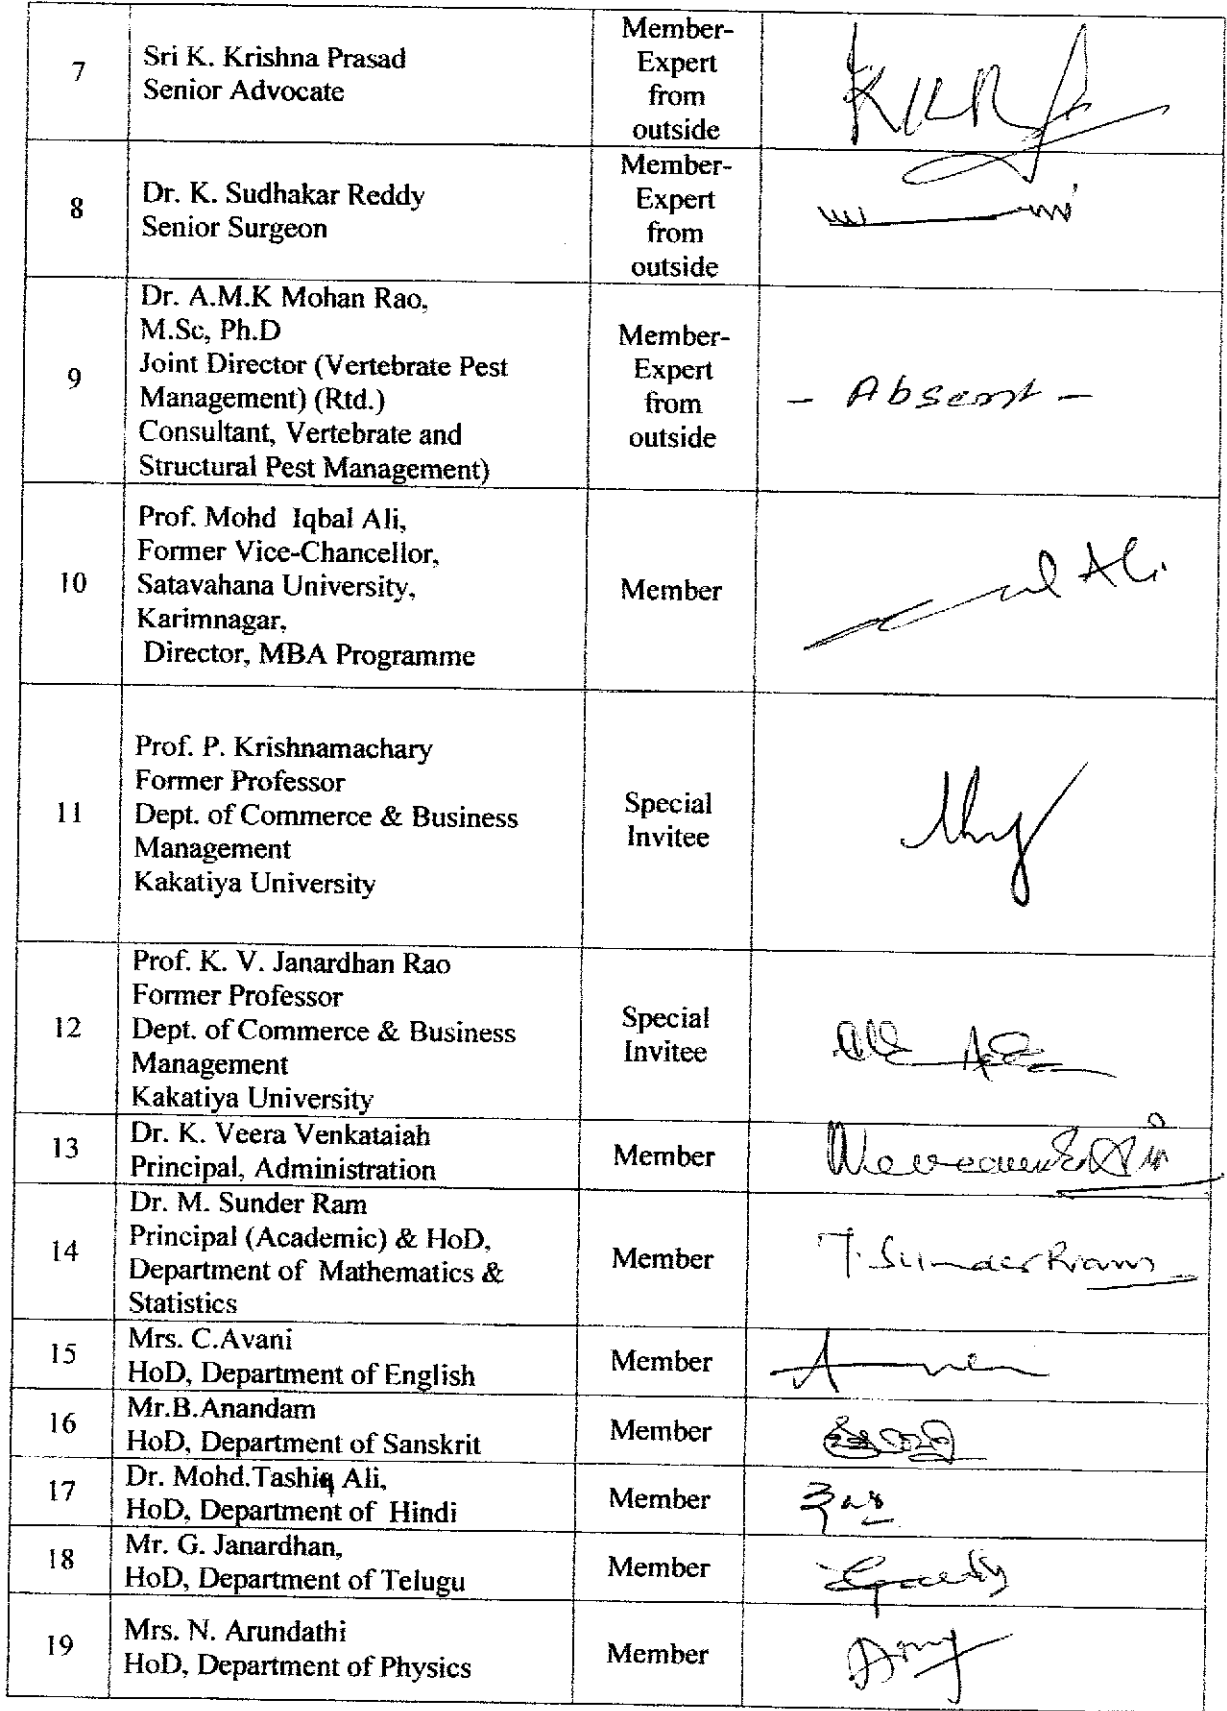 7
Sri K. Krishna Prasad
Senior Advocate
Member-
Expert
from
outside
8
Dr. K. Sudhakar Reddy
Senior Surgeon
Member-
Expert
from
outside
9
Dr. A.M.K Mohan Rao,
M.Sc, Ph.D
Joint Director (Vertebrate Pest
Management) (Rtd.)
Consultant, Vertebrate and
Structural Pest Management)
Member-
Expert
from
outside
- Absent -
10
Prof. Mohd Iqbal Ali,
Former Vice-Chancellor,
Satavahana University,
Karimnagar,
Director, MBA Programme
Member
Ali
11
Prof. P. Krishnamachary
Former Professor
Dept. of Commerce & Business
Management
Kakatiya University
Special
Invitee
12
Prof. K. V. Janardhan Rao
Former Professor
Dept. of Commerce & Business
Management
Kakatiya University
Special
Invitee
13
Dr. K. Veera Venkataiah
Principal, Administration
Member
14
Dr. M. Sunder Ram
Principal (Academic) & HoD,
Department of Mathematics &
Statistics
Member
Sunder Ram
15
Mrs. C.Avani
HoD, Department of English
Member
16
Mr.B.Anandam
HoD, Department of Sanskrit
Member
17
Dr. Mohd.Tashiq Ali,
HoD, Department of Hindi
Member
18
Mr. G. Janardhan,
HoD, Department of Telugu
Member
19
Mrs. N. Arundathi
HoD, Department of Physics
Member